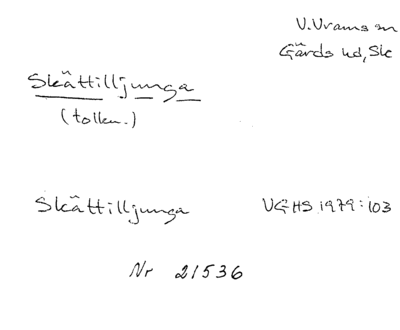 V. Vrams sn
Gärds hd, Sk
Skättilljunga
(tolkn.)
Skättilljunga VGHS 1979:103
Nr 21536